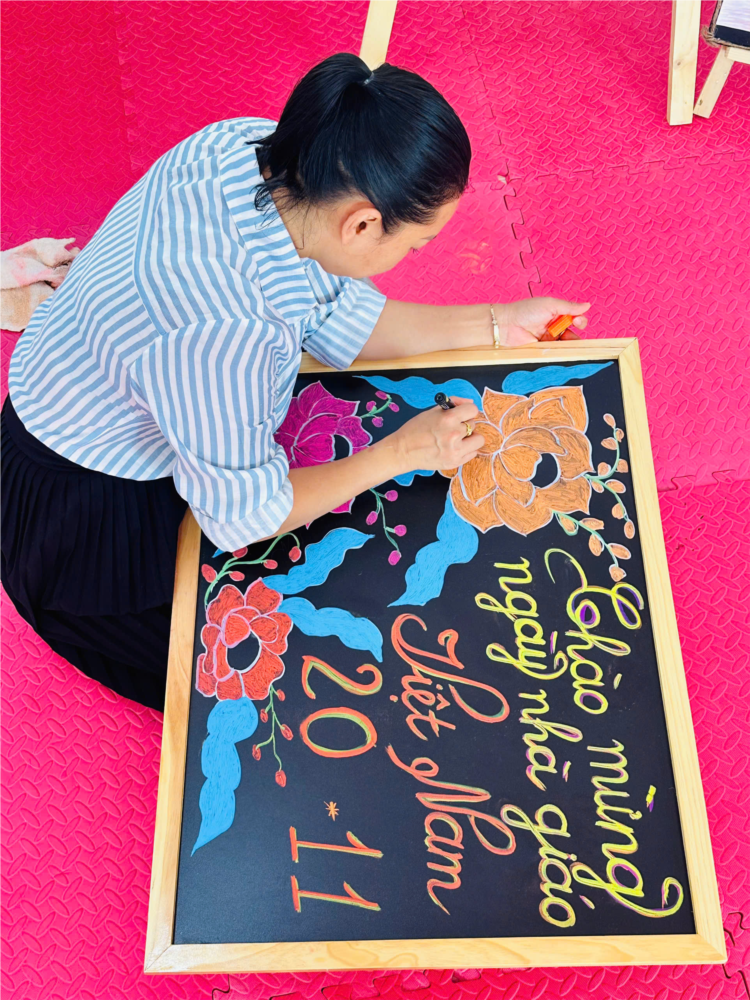 Chào mừng
ngày nhà giáo
Việt Nam
20 * 11